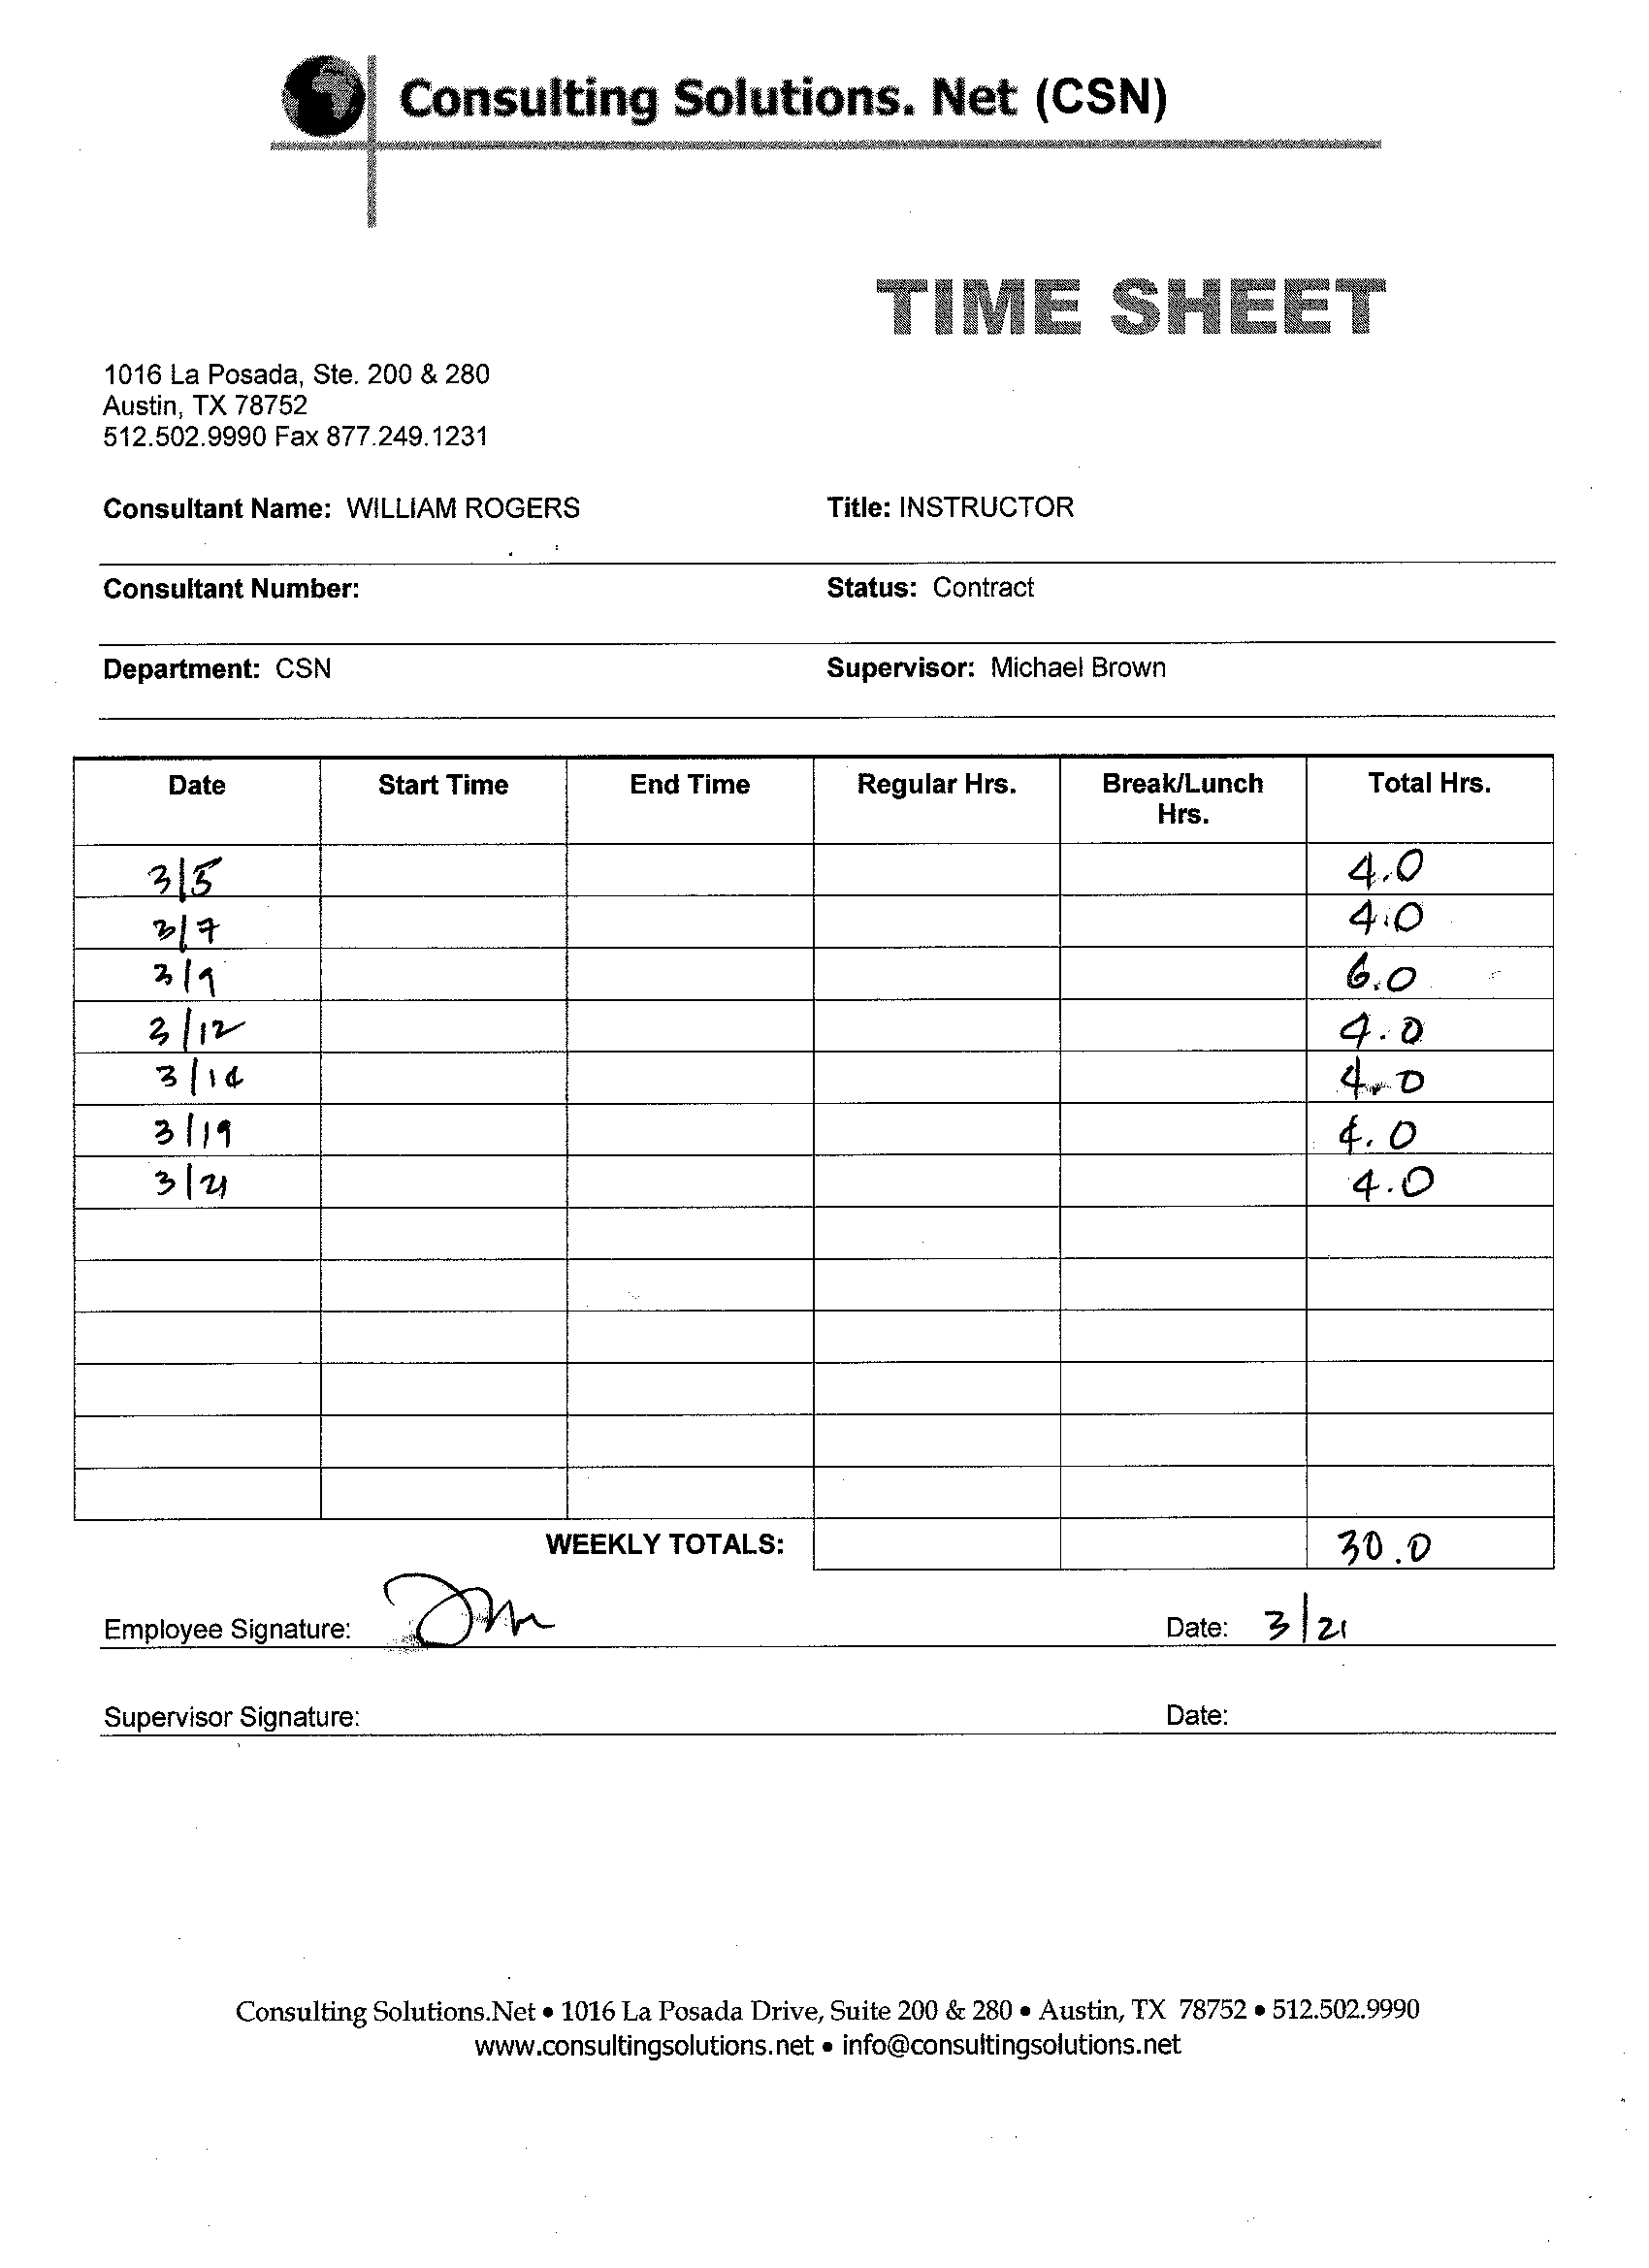 Consulting Solutions. Net (CSN)
TIME SHEET
1016 La Posada, Ste. 200 & 280
Austin, TX 78752
512.502.9990 Fax 877.249.1231
Consultant Name: WILLIAM ROGERS Title: INSTRUCTOR
Consultant Number: Status: Contract
Department: CSN Supervisor: Michael Brown
Date Start Time End Time Regular Hrs. Break/Lunch Hrs. Total Hrs.
3/5 4.0
3/7 4.0
3/9 6.0
3/12 4.0
3/14 4.0
3/19 4.0
3/21 4.0
WEEKLY TOTALS: 30.0
Employee Signature: Date: 3/21
Supervisor Signature: Date:
Consulting Solutions.Net • 1016 La Posada Drive, Suite 200 & 280 • Austin, TX 78752 • 512.502.9990
www.consultingsolutions.net • info@consultingsolutions.net